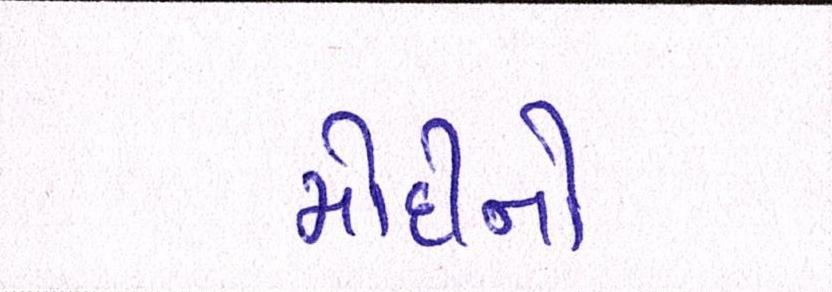 મોદીનો